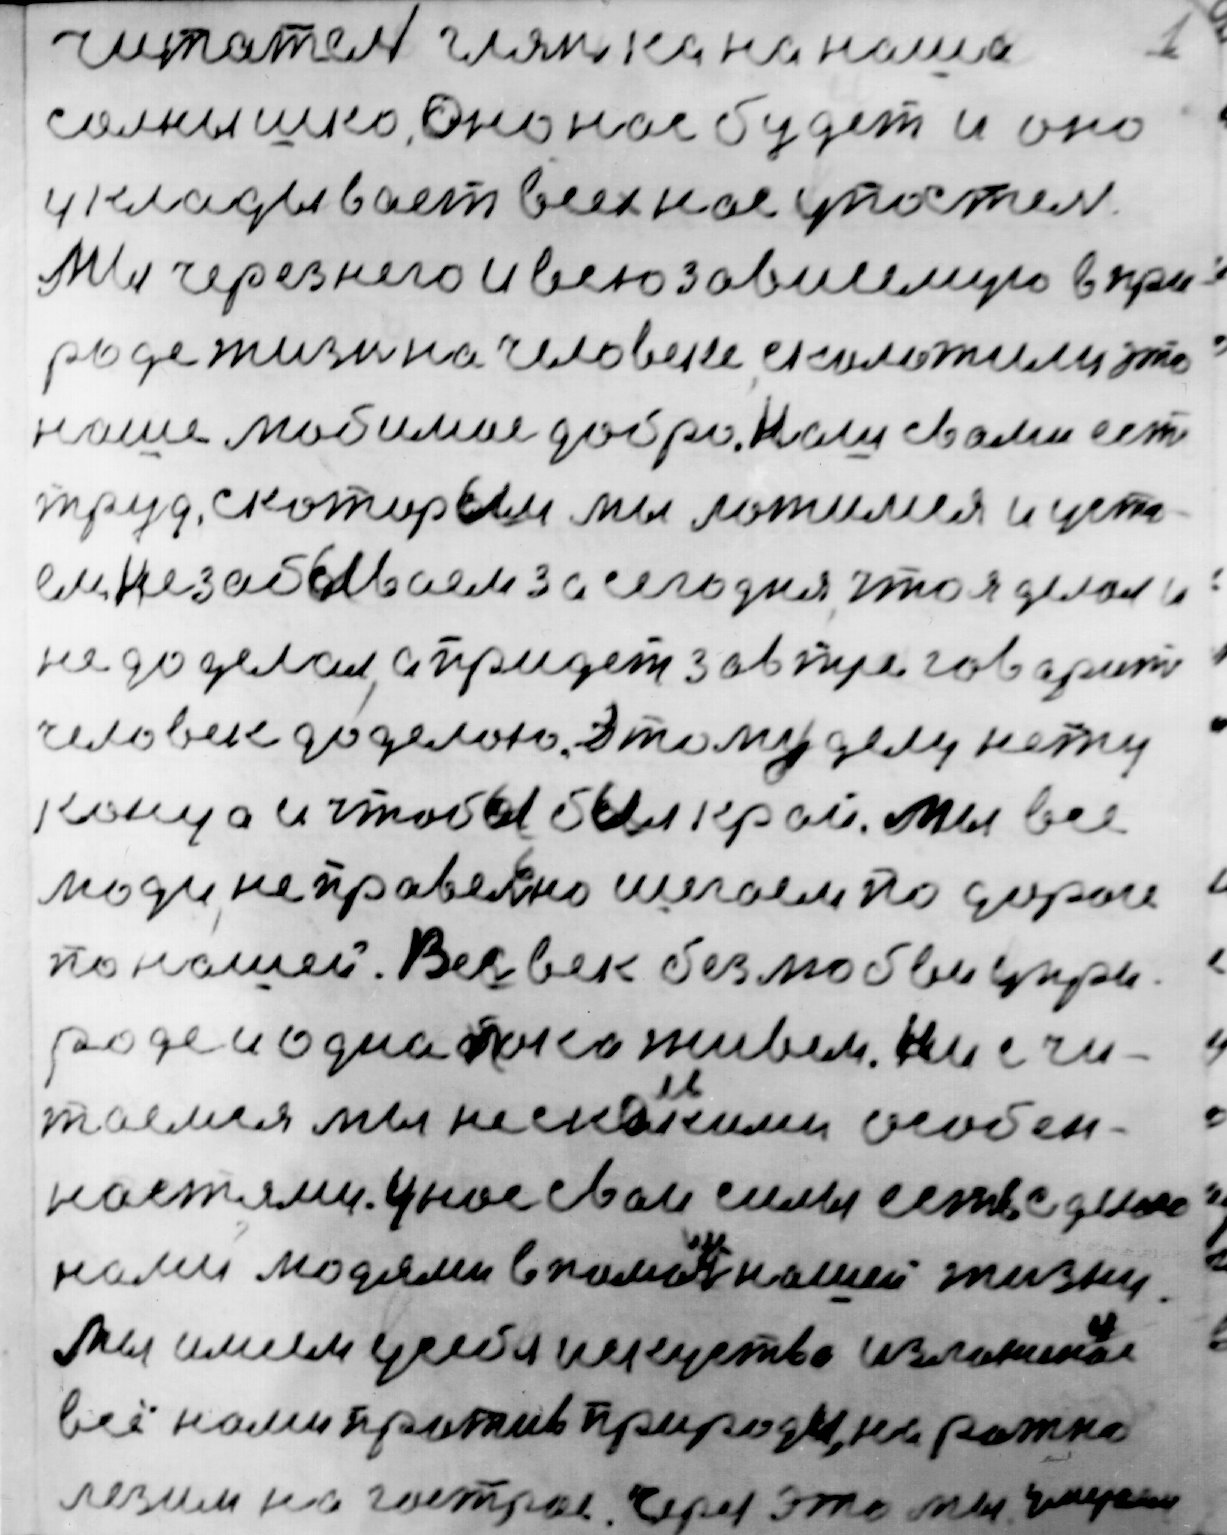 читател глянь ка на наша 1
солнышко, Оно нас будет и оно
укладывает всех нас упостел.
Мы через него и всю зависемую в при
роде жизн на человеке, сколотили это
наше любимае добро. Наш свами ест
труд, с которым мы ложимся и уста-
ем, Незабываем за сегодня, что я делал и
не доделал, а придет завтре говарит
человек доделаю. Этому делу нету
конца и чтобы был край. Мы все
люди, не правельно шегаем по дороге
по нашей. Весь век без любви у при-
роде и одна живем. Ни счи-
таемся мы не с какими особен-
ностями. У нас свои силы есть с
нами людями в нашей жизни.
Мы имеем у себя искуство изложеное
всё нами против природы, на ражно
лезим на гострое. Через это мы умераем